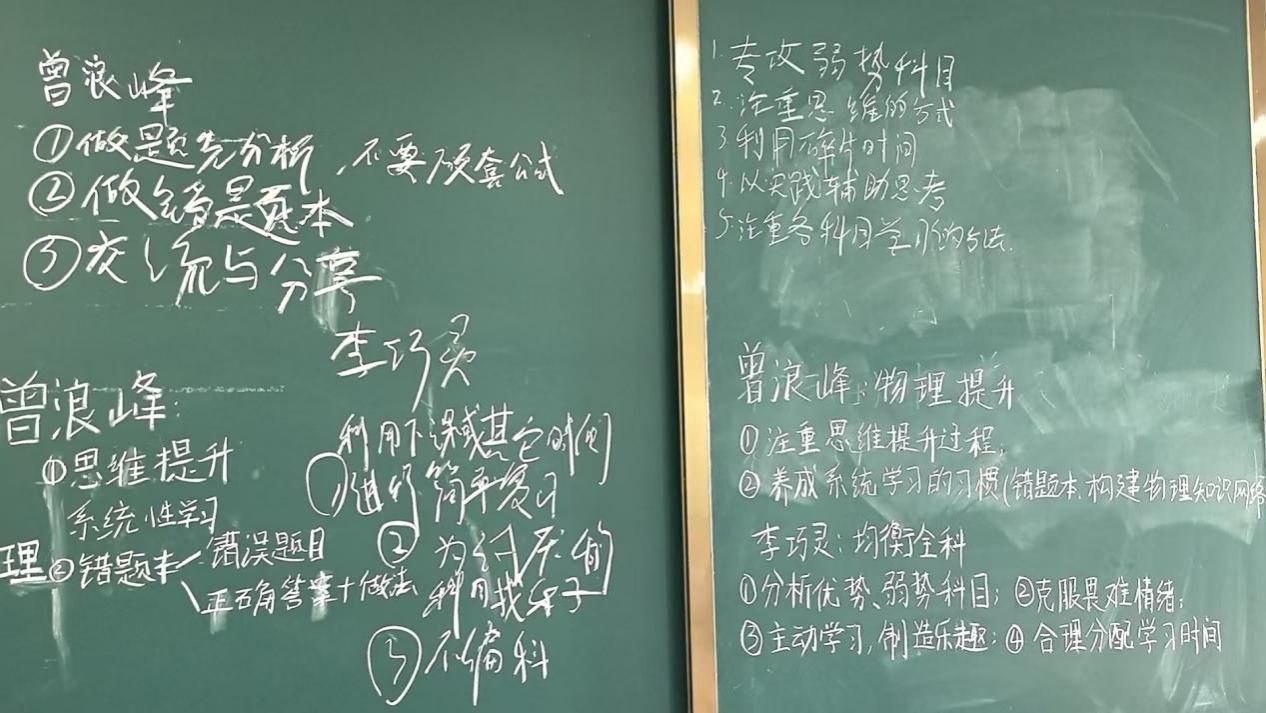 曾浪峰
①做题先分析,不要硬套公式
②做错题本
③交流与分享
李巧灵
利用下课或其它时间
①进行简单复习
②
科目找乐子
③不偏科
曾浪峰:
①思维提升
系统性学习
理②错题本 错误题目
正确答案+做法
1.专攻弱势科目
2.注重思维的方式
3.利用碎片时间
4.从实践辅助思考
5.注重各科目学习的方法.
曾浪峰:物理提升
①注重思维提升过程;
②养成系统学习的习惯(错题本.构建物理知识网络
李巧灵:均衡全科
①分析优势、弱势科目;②克服畏难情绪;
③主动学习,制造乐趣;④合理分配学习时间